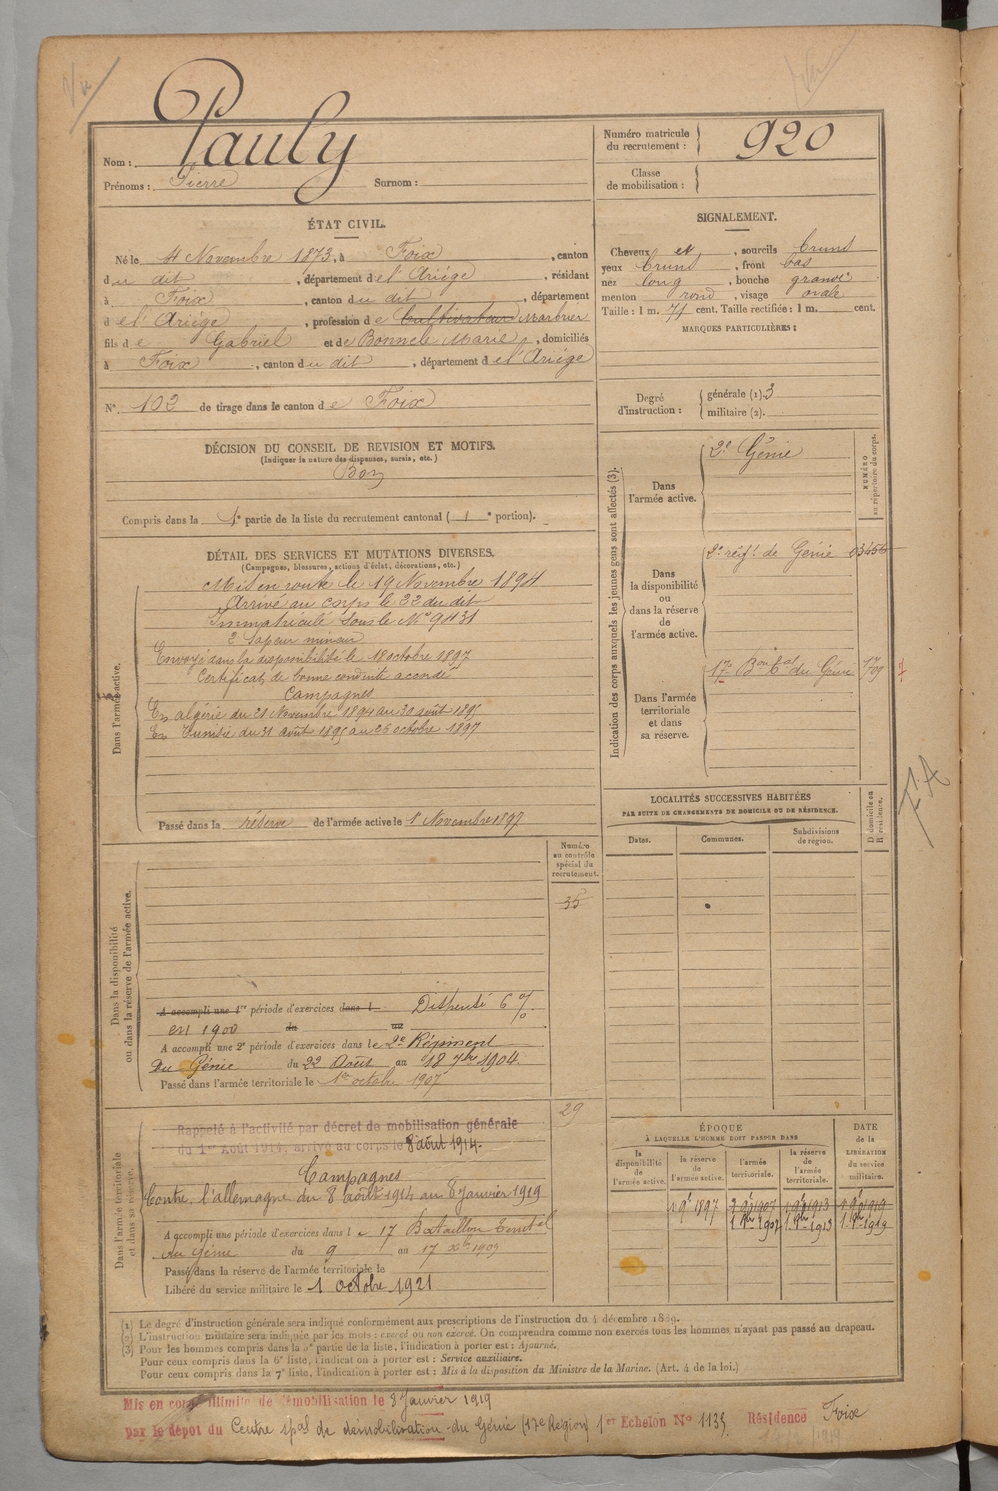 Vu
Nom : Pauly
Prénoms : Pierre Surnom :
Numéro matricule du recrutement : 920
Classe de mobilisation :
ÉTAT CIVIL.
Né le 4 Novembre 1873, à Foix, canton
du dit, département de l'Ariège, résidant
à Foix, canton du dit, département
de l'Ariège, profession de Cultivateur Marbrier
fils de Gabriel et de Bonnele Marie, domiciliés
à Foix, canton du dit, département de l'Ariège
N° 102 de tirage dans le canton de Foix
SIGNALEMENT.
Cheveux et, sourcils bruns
yeux bruns, front bas
nez long, bouche grande
menton rond, visage ovale
Taille : 1 m. 71 cent. Taille rectifiée : 1 m. cent.
MARQUES PARTICULIÈRES :
Degré d'instruction : générale (1). 3
militaire (2).
DÉCISION DU CONSEIL DE REVISION ET MOTIFS.
(Indiquer la nature des dispenses, sursis, etc.)
Bon
Compris dans la 1e partie de la liste du recrutement cantonal ( 1e portion).
DÉTAIL DES SERVICES ET MUTATIONS DIVERSES.
(Campagnes, blessures, actions d'éclat, décorations, etc.)
Dans l'armée active.
Mis en route le 19 Novembre 1894
Arrivé au corps le 22 du dit
Immatriculé sous le N° 9431
2e Sapeur mineur
Envoyé dans la disponibilité le 18 octobre 1897
Certificat de bonne conduite accordé
Campagnes
En algérie du 21 Novembre 1894 au 30 août 1895
En Tunisie du 31 août 1895 au 26 octobre 1897
Passé dans la réserve de l'armée active le 1 Novembre 1897
Indication des corps auxquels les jeunes gens sont affectés (3).
NUMÉRO au répertoire du corps.
Dans l'armée active.
2e Génie
Dans la disponibilité ou dans la réserve de l'armée active.
2e régt. de Génie 03456
Dans l'armée territoriale et dans sa réserve.
17e Bon tal du Génie
FA
LOCALITÉS SUCCESSIVES HABITÉES
PAR SUITE DE CHANGEMENTS DE DOMICILE OU DE RÉSIDENCE.
Dates. Communes. Subdivisions de région. D domicile ou R résidence.
Dans la disponibilité ou dans la réserve de l'armée active.
Numéro au contrôle spécial du recrutement.
35
A accompli une 1re période d'exercices dans l Dispensé 6 %
en 1900 du au
A accompli une 2e période d'exercices dans le 2e Régiment
du Génie du 22 Août au 18 7bre 1904.
Passé dans l'armée territoriale le 1er octobre 1907
Dans l'armée territoriale et dans sa réserve.
29
Rappelé à l'activité par décret de mobilisation générale
du 1er Août 1914, arrivé au corps le 8 août 1914.
Campagnes
Contre l'allemagne du 8 août 1914 au 8 janvier 1919
A accompli une période d'exercices dans le 17 Bataillon Territ al
du Génie du 9 au 17 Xbre 1909
Passé dans la réserve de l'armée territoriale le
Libéré du service militaire le 1 octobre 1921
ÉPOQUE
À LAQUELLE L'HOMME DOIT PASSER DANS
la disponibilité de l'armée active. la réserve de l'armée active. l'armée territoriale. la réserve de l'armée territoriale. DATE de la LIBÉRATION du service militaire.
1 9e 1897 1907 1913 1919
1 8bre 1907 1 8bre 1913 1 8bre 1919
(1) Le degré d'instruction générale sera indiqué conformément aux prescriptions de l'instruction du 4 décembre 1889.
(2) L'instruction militaire sera indiquée par les mots : exercé ou non exercé. On comprendra comme non exercés tous les hommes n'ayant pas passé au drapeau.
(3) Pour les hommes compris dans la 5e partie de la liste, l'indication à porter est : Ajourné.
Pour ceux compris dans la 6e liste, l'indication à porter est : Service auxiliaire.
Pour ceux compris dans la 7e liste, l'indication à porter est : Mis à la disposition du Ministre de la Marine. (Art. 4 de la loi.)
Mis en congé illimité de démobilisation le 8 Janvier 1919
par le dépôt du Centre spal de démobilisation du Génie (17e Région) 1er Echelon N° 1135 Résidence Foix